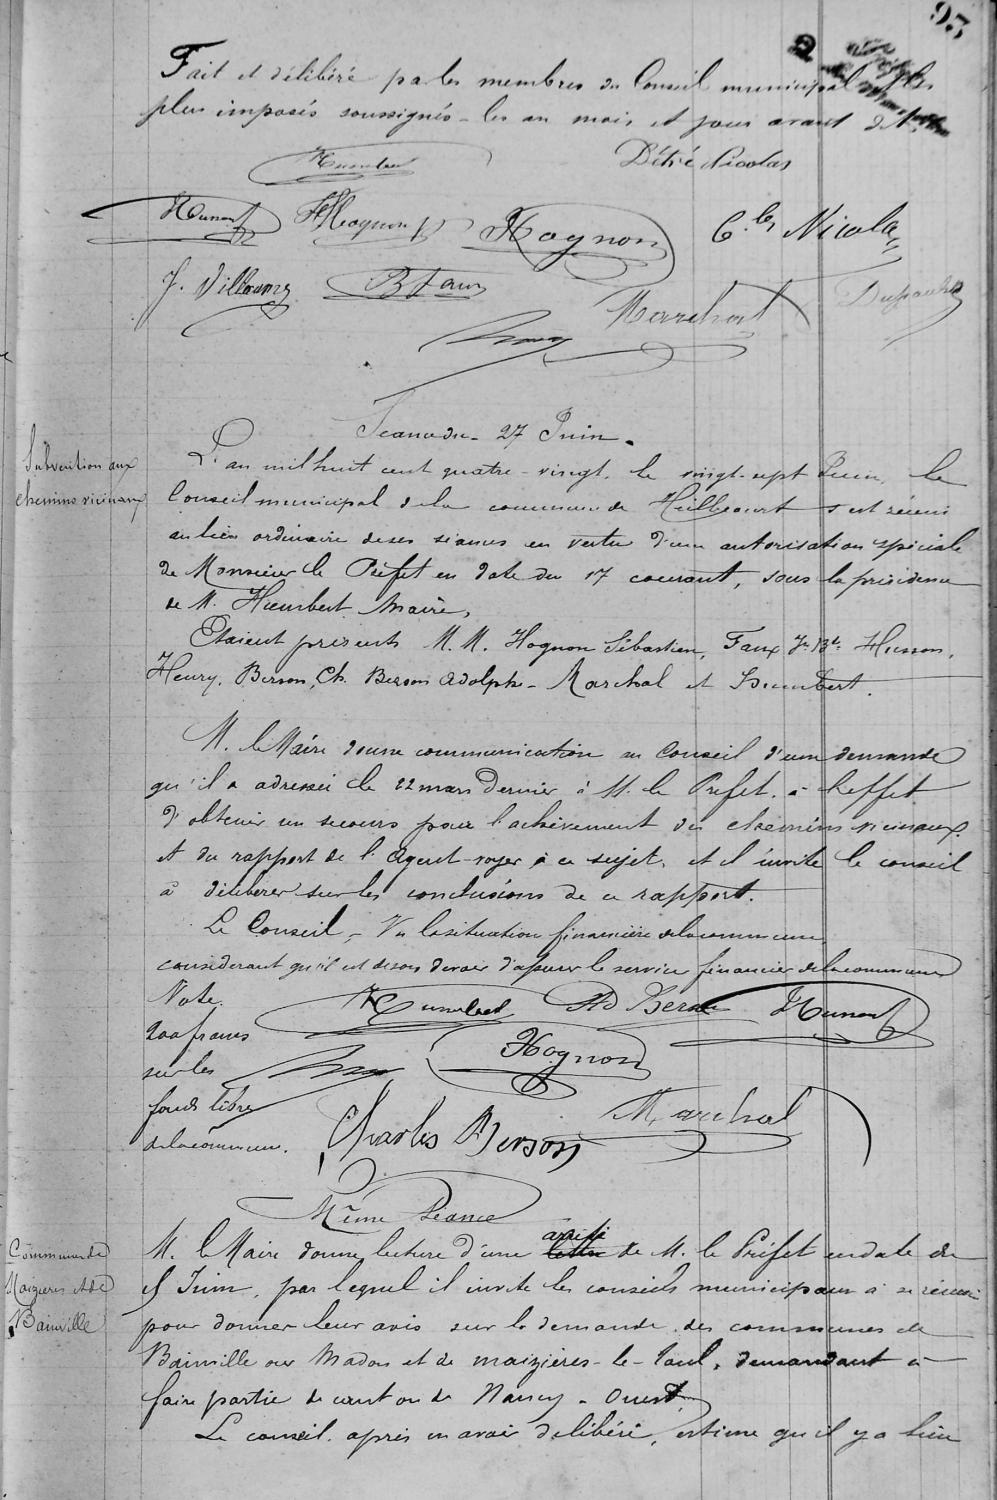 93
Fait et délibéré par les membres du Conseil municipal et les
plus imposés soussignés - les an mois et jour avant dits
Humbert
Détré Nicolas
Hognon
Hognon
C. les Nicolas
J. Villaume
B Faux
Marchal
Séance du - 27 Juin.
Subvention aux
chemins vicinaux
L'an mil huit cent quatre-vingt, le vingt-sept Juin, le
Conseil municipal de la commune de Heillecourt s'est réuni
au lieu ordinaire de ses séances en vertu d'une autorisation spéciale
de Monsieur le Préfet en date du 17 courant, sous la présidence
de M. Humbert Maire,
Etaient présents M.M. Hognon Sébastien, Faux J. Bte Husson,
Henry, Berson, Ch. Berson Adolphe - Marchal et Humbert.
M. le Maire donne communication au Conseil d'une demande
qu'il a adressée le 22 mars dernier à M. le Préfet, à l'effet
d'obtenir un secours pour l'achèvement des chemins vicinaux
et du rapport de l'Agent-voyer à ce sujet, et il invite le conseil
à délibérer sur les conclusions de ce rapport.
Le Conseil, - Vu la situation financière de la commune
considérant qu'il est de son devoir d'apurer le service financier de la commune
Vote
200 francs
sur les
fonds libres
de la commune.
Humbert
Ad Berson
Hognon
Charles Berson
Marchal
Même Séance
Commune de
Maizières et de
Bainville
M. le Maire donne lecture d'une lettre arrêté de M. le Préfet en date du
5 Juin, par lequel il invite les conseils municipaux à se réunir
pour donner leur avis sur la demande des communes de
Bainville sur Madon et de Maizières-le-Toul, demandant à
faire partie de canton de Nancy - Ouest.
Le conseil après en avoir délibéré, estime qu'il y a lieu